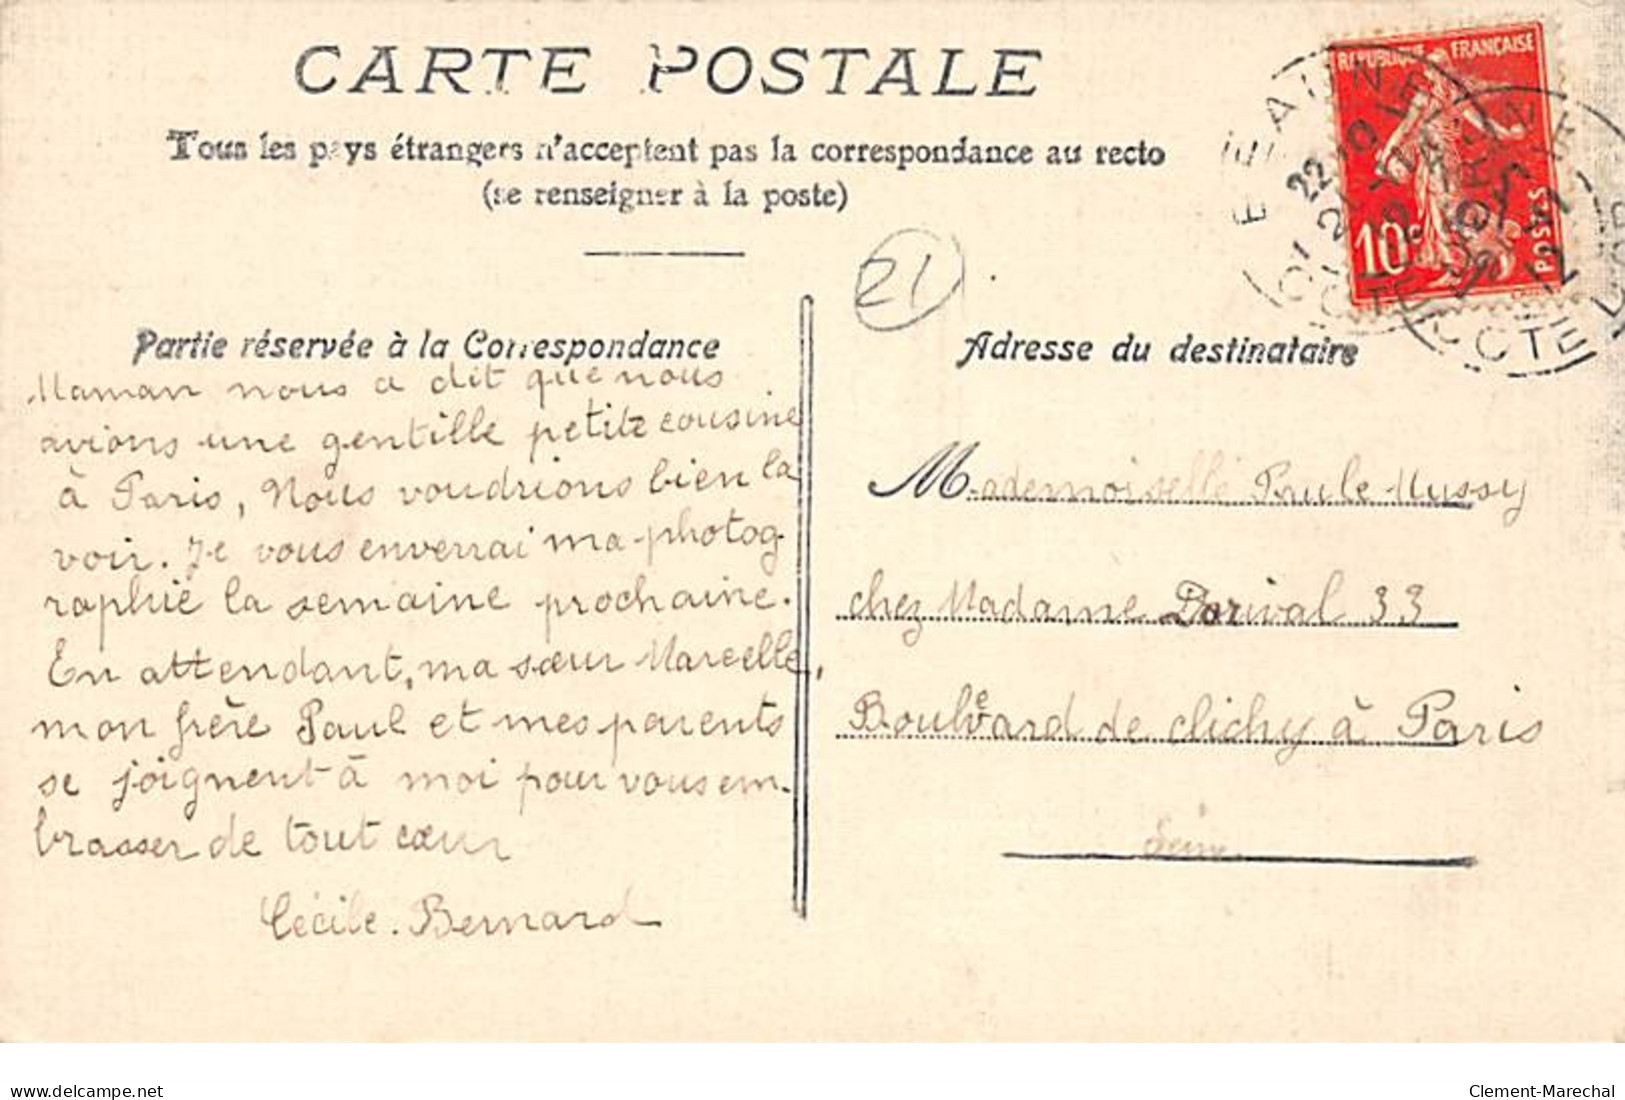 CARTE POSTALE
Tous les pays étrangers n'acceptent pas la correspondance au recto
(se renseigner à la poste)
REPUBLIQUE FRANÇAISE
10c
POSTES
21
Partie réservée à la Correspondance
Maman nous a dit que nous
avions une gentille petite cousine
à Paris, Nous voudrions bien la
voir. Je vous enverrai ma photog-
raphie la semaine prochaine.
En attendant, ma sœur Marcelle,
mon frère Paul et mes parents
se joignent à moi pour vous em-
brasser de tout cœur
Cécile. Bernard
Adresse du destinataire
Mademoiselle Paule Mussy
chez Madame Dorival 33
Boulevard de clichy à Paris
Seine
delcampe.net
Clement-Marechal